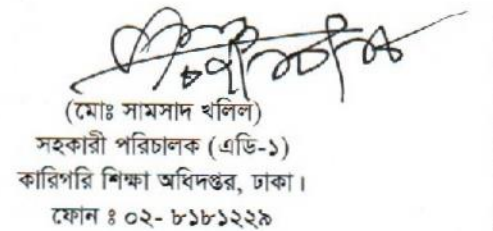 (মোঃ সামসাদ খলিল)
সহকারী পরিচালক (এডি-১)
কারিগরি শিক্ষা অধিদপ্তর, ঢাকা।
ফোন ঃ ০২- ৮১৮১২২৯